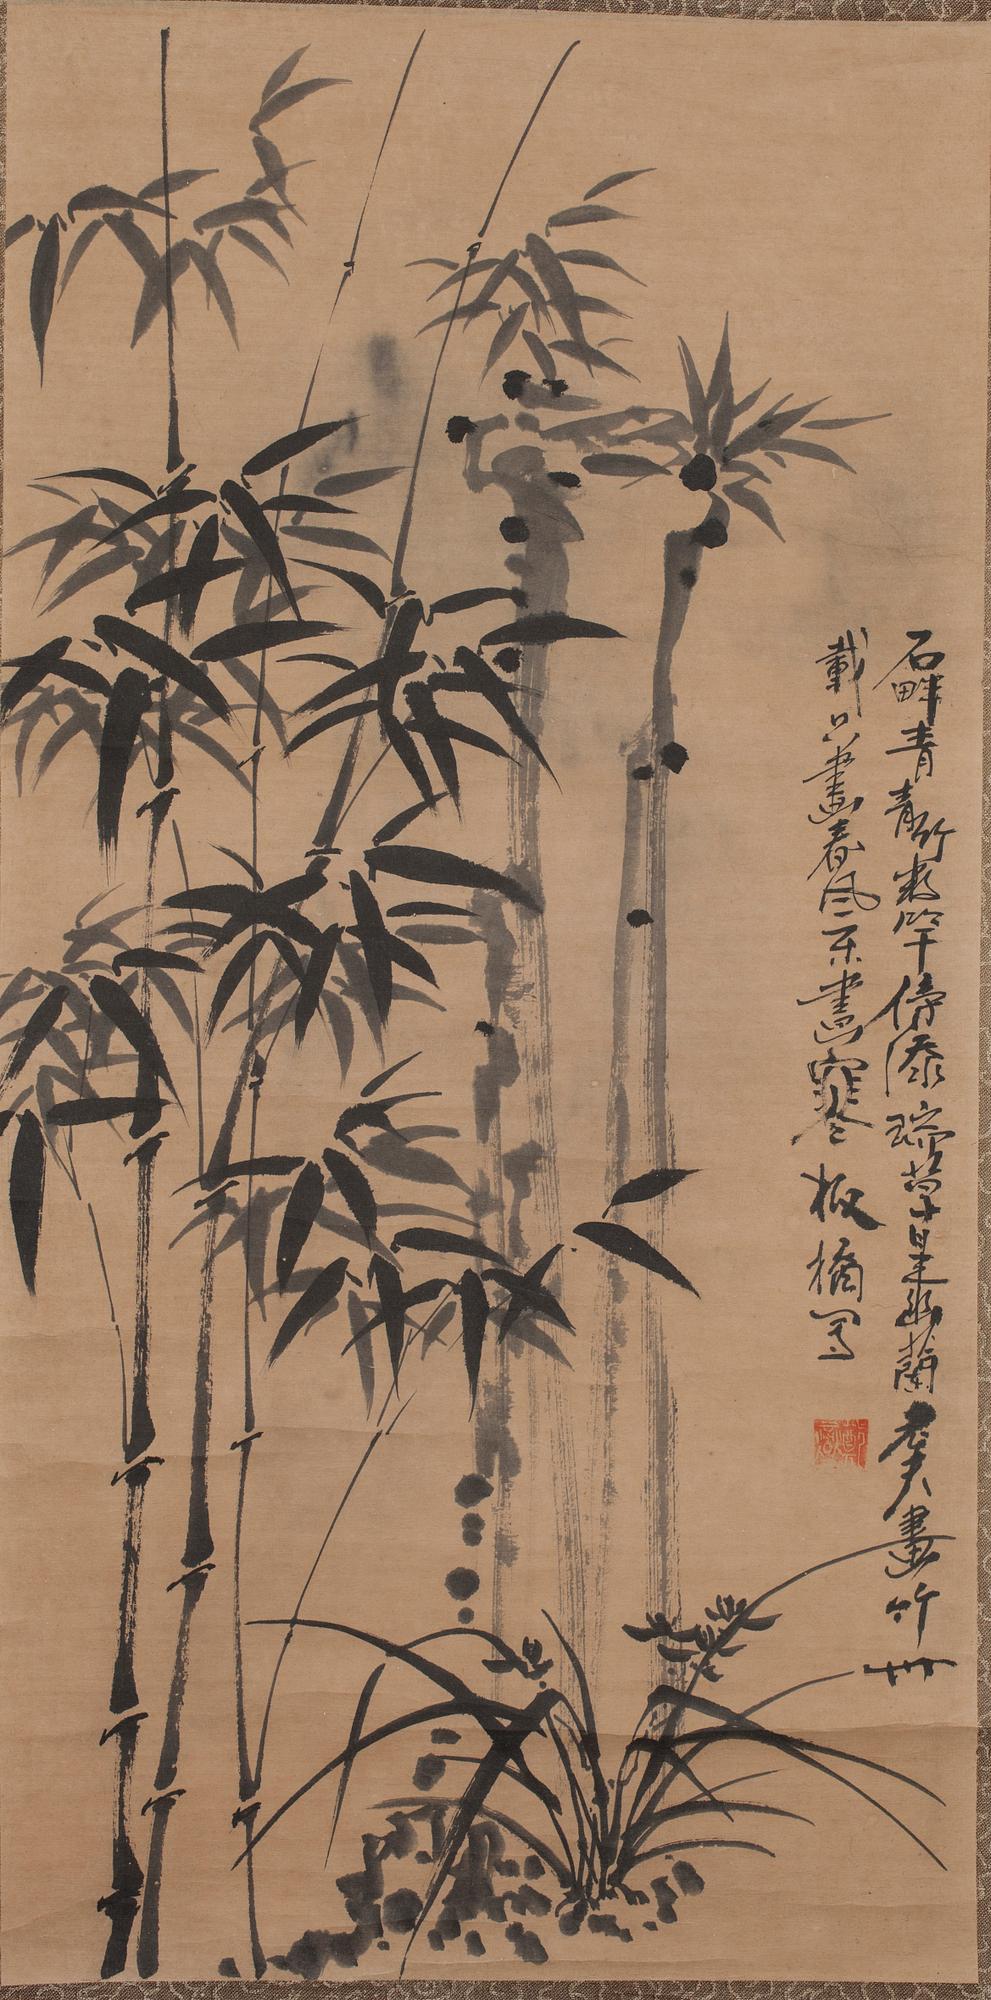 石畔青青竹數竿傍添瑞草是幽蘭老夫畫竹卅
載只畫春風不畫寒 板橋寫